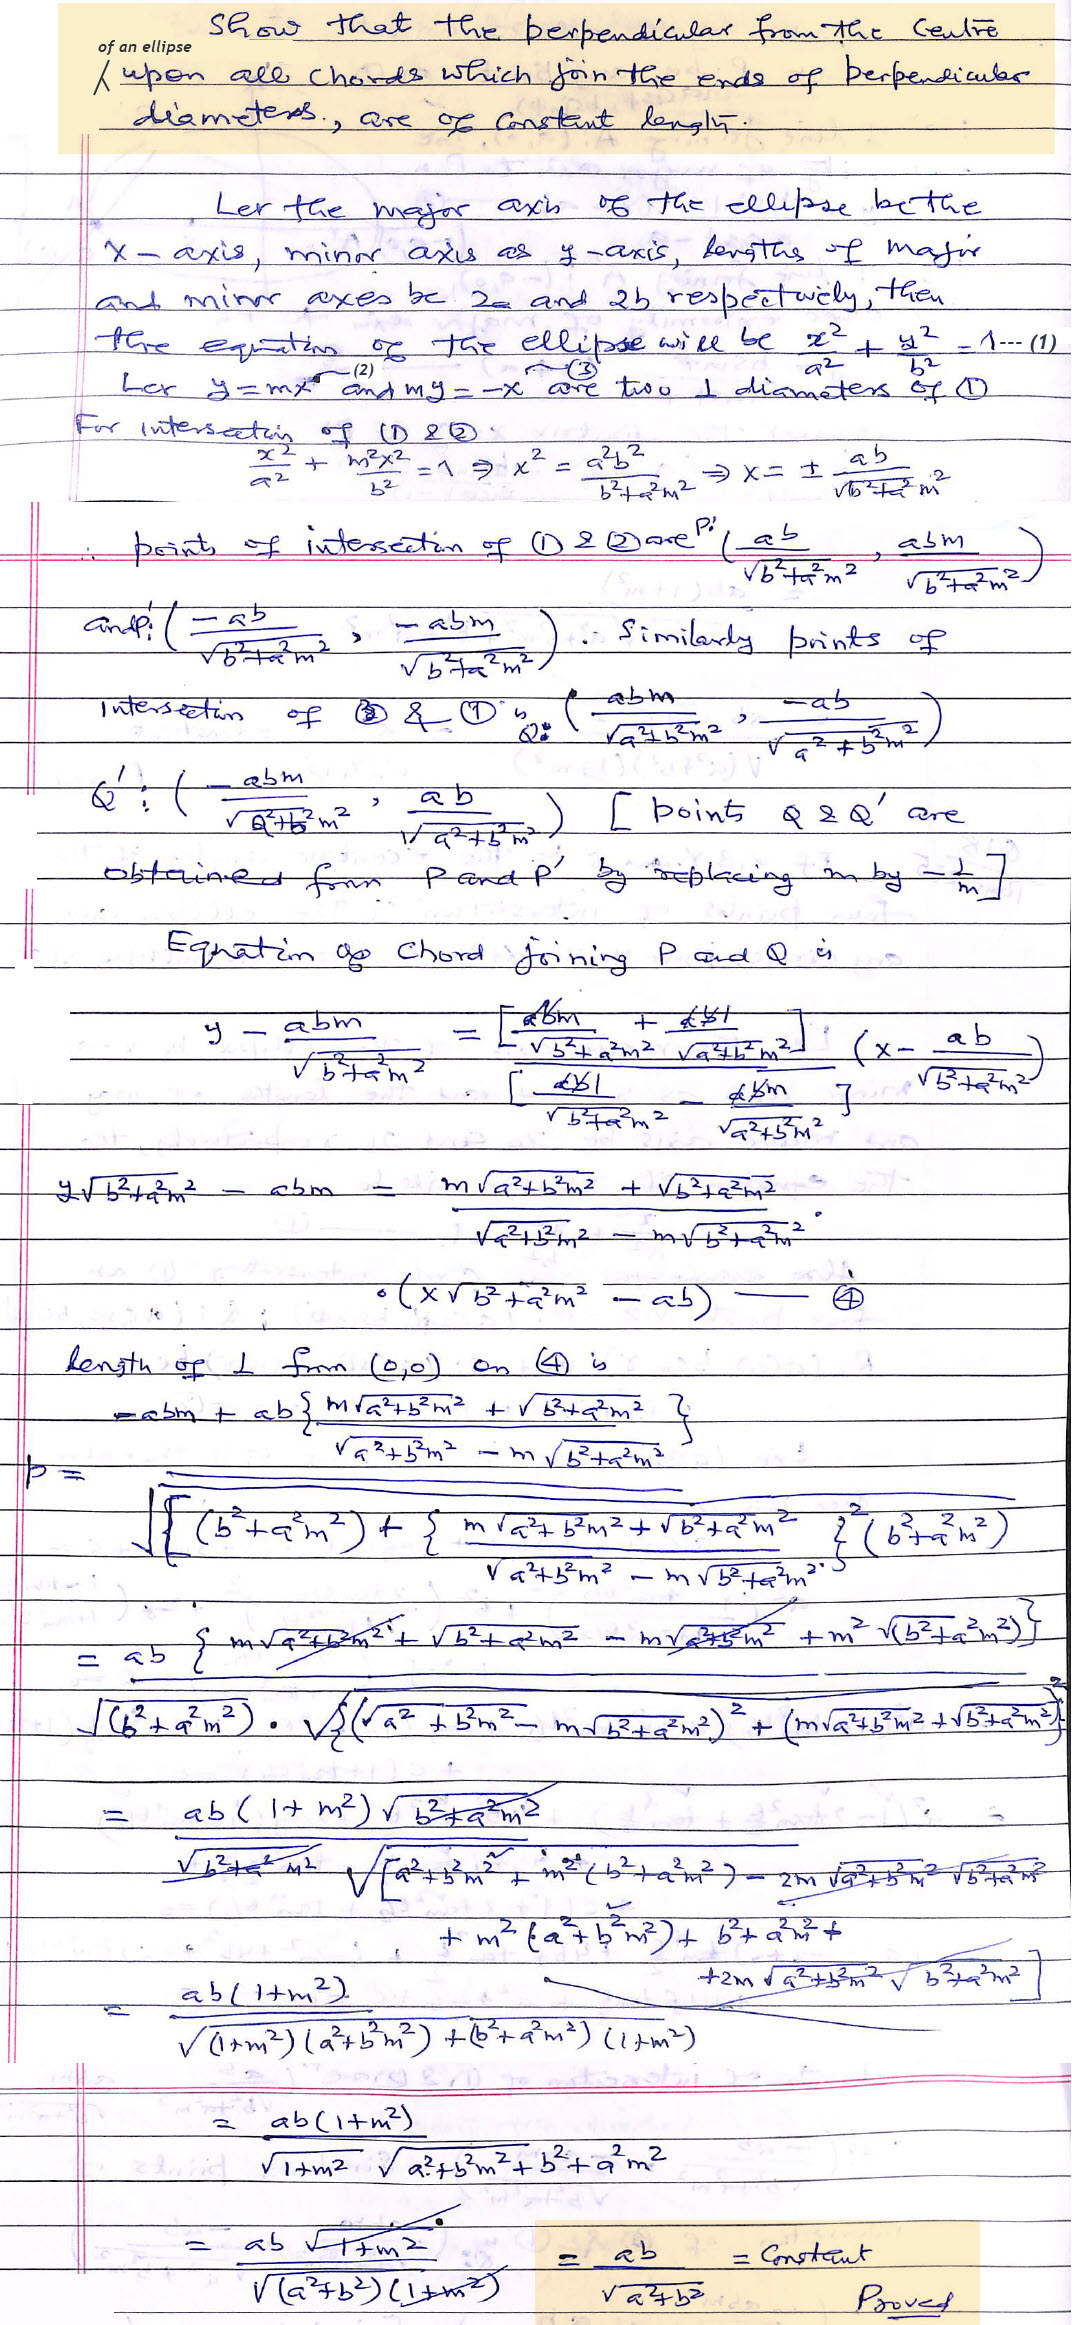 Show that the perpendicular from the Centre
of an ellipse
upon all chords which join the ends of perpendicular
diameters., are of constant length.
Let the major axis of the ellipse be the
x-axis, minor axis as y-axis, lengths of major
and minor axes be 2a and 2b respectively, then
the equation of the ellipse will be x²/a² + y²/b² = 1 --- (1)
Let y=mx (2) and my=-x (3) are two ⊥ diameters of ①
For intersection of ① & ②.
x²/a² + m²x²/b² = 1 ⇒ x² = a²b²/(b²+a²m²) ⇒ x = ± ab/√(b²+a²m²)
∴ points of intersection of ① & ② are P: (ab/√(b²+a²m²), abm/√(b²+a²m²))
and P': (-ab/√(b²+a²m²), -abm/√(b²+a²m²)). Similarly points of
intersection of ③ & ① is Q: (abm/√(a²+b²m²), -ab/√(a²+b²m²))
Q': (-abm/√(a²+b²m²), ab/√(a²+b²m²)) [points Q & Q' are
obtained from P and P' by replacing m by -1/m]
Equation of chord joining P and Q is
y - abm/√(b²+a²m²) = [abm/√(b²+a²m²) + ab1/√(a²+b²m²)] / [ab1/√(b²+a²m²) - abm/√(a²+b²m²)] (x - ab/√(b²+a²m²))
y√(b²+a²m²) - abm = (m√(a²+b²m²) + √(b²+a²m²)) / (√(a²+b²m²) - m√(b²+a²m²)) .
.(x√(b²+a²m²) - ab) — ④
length of ⊥ from (0,0) on ④ is
p = (-abm + ab{(m√(a²+b²m²) + √(b²+a²m²)) / (√(a²+b²m²) - m√(b²+a²m²))}) / √[(b²+a²m²) + {(m√(a²+b²m²) + √(b²+a²m²)) / (√(a²+b²m²) - m√(b²+a²m²))}² (b²+a²m²)
= ab{m√(a²+b²m²) + √(b²+a²m²) - m√(a²+b²m²) + m²√(b²+a²m²)} / √(b²+a²m²) . √{(√(a²+b²m²) - m√(b²+a²m²))² + (m√(a²+b²m²) + √(b²+a²m²))²}
= ab(1+m²)√(b²+a²m²) / √(b²+a²m²) √[a²+b²m² + m²(b²+a²m²) - 2m√(a²+b²m²) √(b²+a²m²)
+ m²(a²+b²m²) + b²+a²m² +
+2m√(a²+b²m²) √(b²+a²m²)]
= ab(1+m²) / √((1+m²)(a²+b²m²) + (b²+a²m²)(1+m²))
= ab(1+m²) / √(1+m²) √(a²+b²m²+b²+a²m²)
= ab√(1+m²) / √((a²+b²)(1+m²)) = ab/√(a²+b²) = Constant
Proved